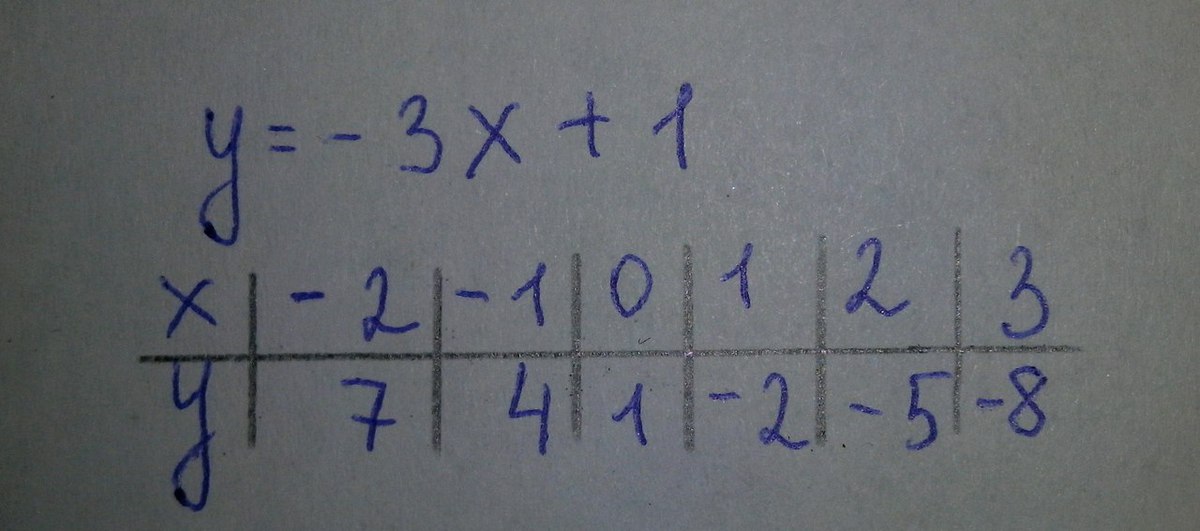 y = - 3x + 1
x | - 2 | - 1 | 0 | 1 | 2 | 3
y | 7 | 4 | 1 | - 2 | - 5 | - 8